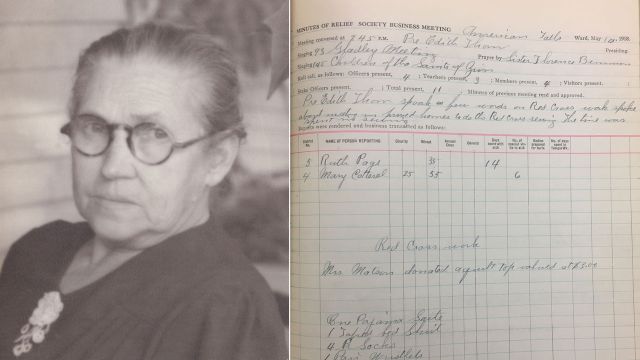 MINUTES OF RELIEF SOCIETY BUSINESS MEETING
American Falls Ward, May 1918.
Meeting convened at 2.45 P.M. Pre Edith Thom Presiding
Singing 93 Meeting Prayer by Sister Florence
Singing 145 Children of the Saints of
Roll call, as follows: Officers present, 4; Teachers present, 3; Members present, 4; Visitors present,
Stake Officers present, ; Total present, 11; Minutes of previous meeting read and approved.
Pre Edith Thom spoke a few words on Red Cross work spoke
about homes to do the Red Cross sewing The time was
spent in sewing
Reports were rendered and business transacted as follows:
District No. NAME OF PERSON REPORTING Charity Wheat Annual Dues General Days spent with sick No. of special visits to sick Bodies prepared for burial No. of days spent in Temple Wk.
3 Ruth Page 35 14
4 Mary Cotterel 25 55 6
Red Cross work
Mrs donated a quilt top valued at $3.00
One Pajama Suit
1 bed
4 Socks
1